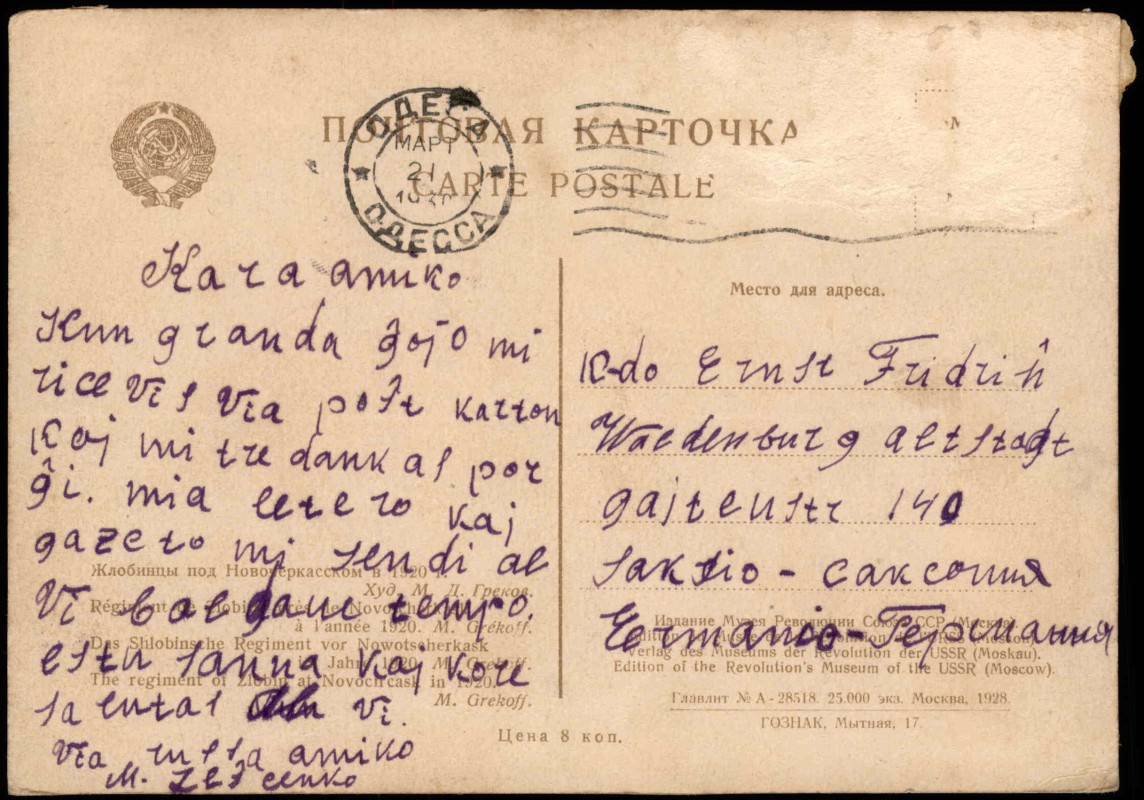 ПОЧТОВАЯ КАРТОЧКА
CARTE POSTALE
ОДЕССА
МАРТ
21
ОДЕССА
Kara amiko
Kun granda ĝojo mi
ricevis Via poŝt karton
Kaj mi tre dankas por
ĝi. mia letero kaj
gazeto mi sendi al
Vi tempo.
estu sanna kaj kore
salutas Vi.
Via russa amiko
M.
Место для адреса.
K-do Ernst Fridriĥ
Waldenburg altstadt
140
saksio - саксония
Germanio - Германия
Жлобинцы под Новочеркасском в 1920 г.
Худ. М. Д. Греков.
Régiment de Zlobin près de Novotcherkask
à l'année 1920. M. Grékoff.
Das Shlobinsche Regiment vor Nowotscherkask
Jahre 1920. M. Grekoff.
The regiment of Zlobin at Novochrcask in 1920.
M. Grekoff.
Цена 8 коп.
Издание Музея Революции Союза ССР (Москва).
Verlag des Museums der Revolution der USSR (Moskau).
Edition of the Revolution's Museum of the USSR (Moscow).
Главлит № А-28518. 25.000 экз. Москва, 1928.
ГОЗНАК, Мытная, 17.